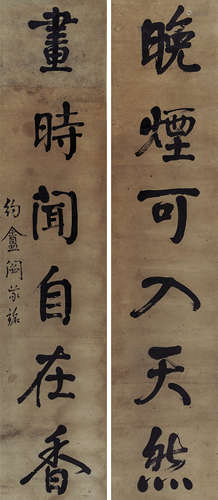 晚煙可入天然
畫時聞自在香
約盦